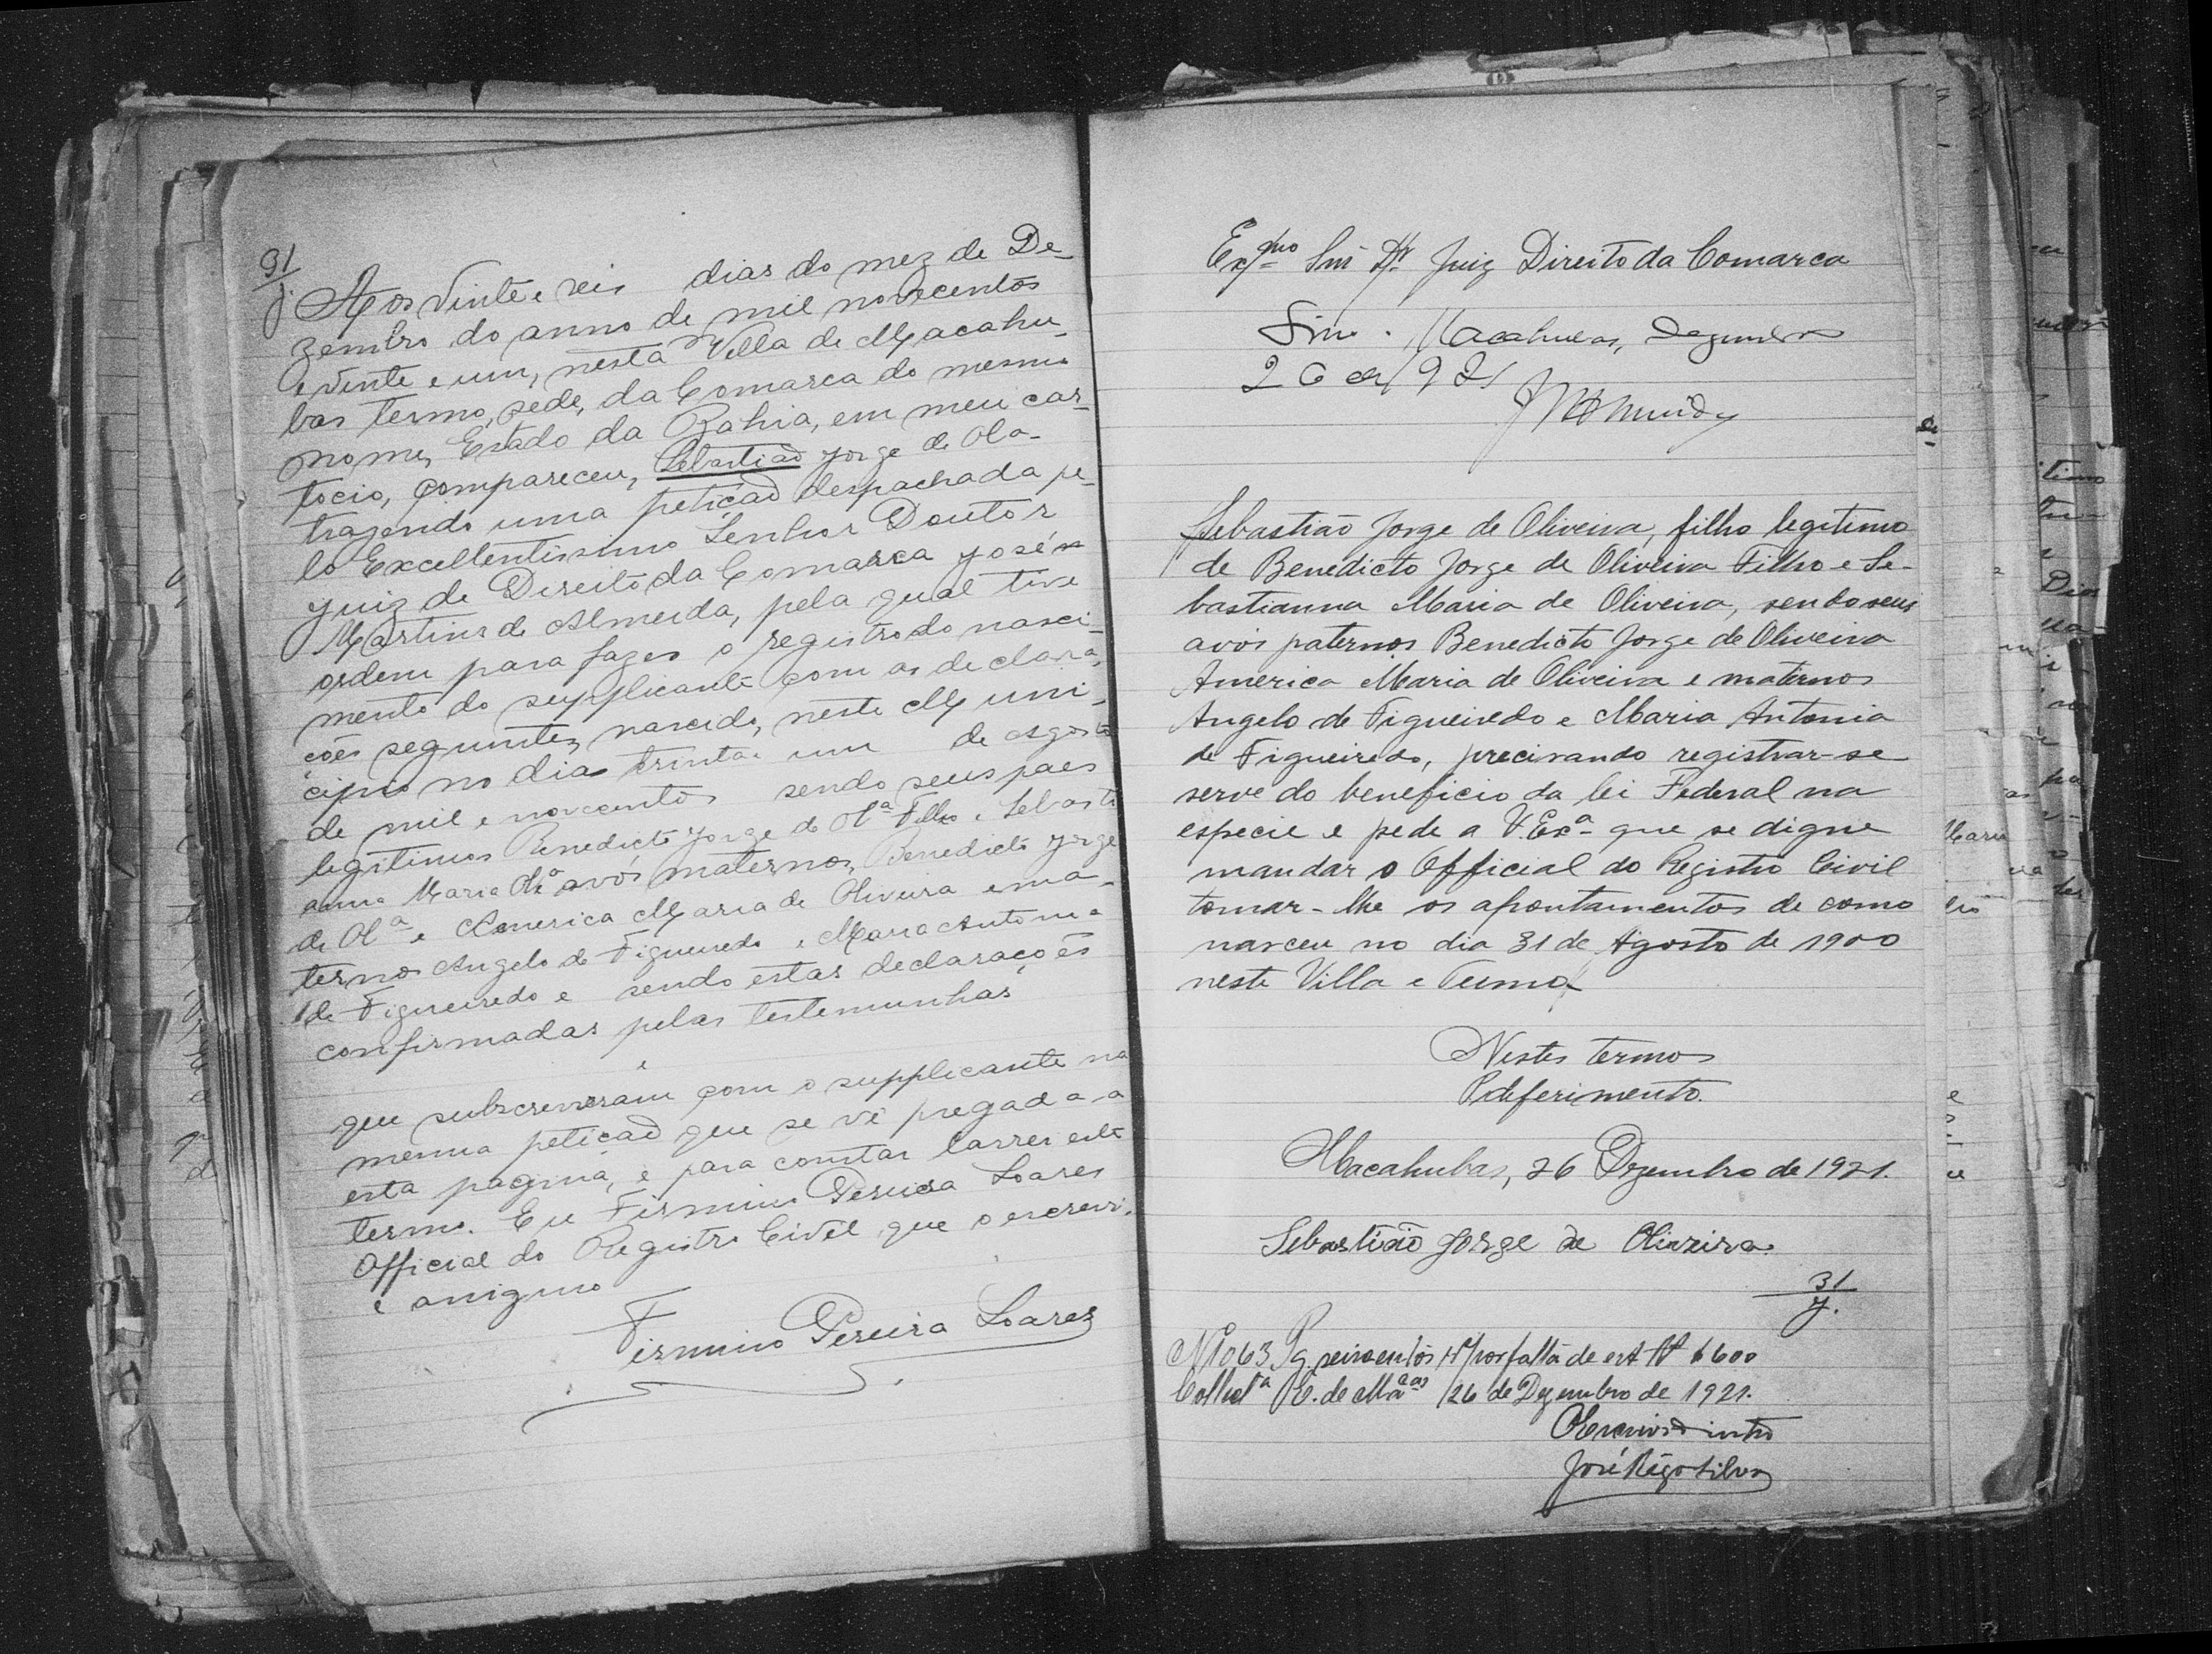 91
Aos vinte e seis dias do mez de De-
zembro do anno de mil novecentos
e vinte e um, nesta Villa de Macahu-
bas termo, sede, da Comarca do mesmo
nome, Estado da Bahia, em meu car-
tocio, compareceu, Sebastiaõ Jorge de Ola-
trazendo uma petiçaõ despachada pe-
lo Excellentissimo Senhor Doutor
Juiz de Direito da Comarca José
Martins de Almeida, pela qual tive
ordem para fazer o registro do nasci-
mento do supplicante com as declara-
ções seguintes, nascido, neste Muni-
cipio no dia trinta e um de Agosto
de mil e novecentos sendo seus paes
legitimos Benedicto Jorge de Olª Filho e Sebasti
anna Maria Olª avós maternos, Benedicto Jorge
de Olª e America Maria de Oliveira e ma-
ternos Angelo de Figueiredo e Maria Antonia
de Figueiredo e sendo estas declarações
confirmadas pelas testemunhas
e
que subscreveram com o supplicante na
mesma petiçaõ que se vê pregada a
esta pagina, e para constar lavrei este
termo. Eu Firmino Pereira Soares
Official do Registro Civil que o escrevi.
e assigno
Firmino Pereira Soares
Exmo Snr Dr Juiz Direito da Comarca
Sim. Macahubas, Dezembro
26 de 1921
Sebastião Jorge de Oliveira, filho legitimo
de Benedicto Jorge de Oliveira Filho e Se-
bastianna Maria de Oliveira, sendo seus
avós paternos Benedicto Jorge de Oliveira
America Maria de Oliveira e maternos
Angelo de Figueiredo e Maria Antonia
de Figueiredo, precisando registrar-se
serve do beneficio da lei Federal na
especie e pede a V. Exª que se digne
mandar o Official do Registro Civil
tomar-lhe os apontamentos de como
nasceu no dia 31 de Agosto de 1900
neste Villa e Termo
Nestes termos
P. deferimento.
Macahubas, 26 Dezembro de 1921.
Sebastião Jorge de Oliveira
31
J.
Nº 1063 Pg. seiscentos rs por falta de est. Rs $600
Collectª E. de Mªas 26 de Dezembro de 1921.
O Escrivão intro
José Rêgo Silva